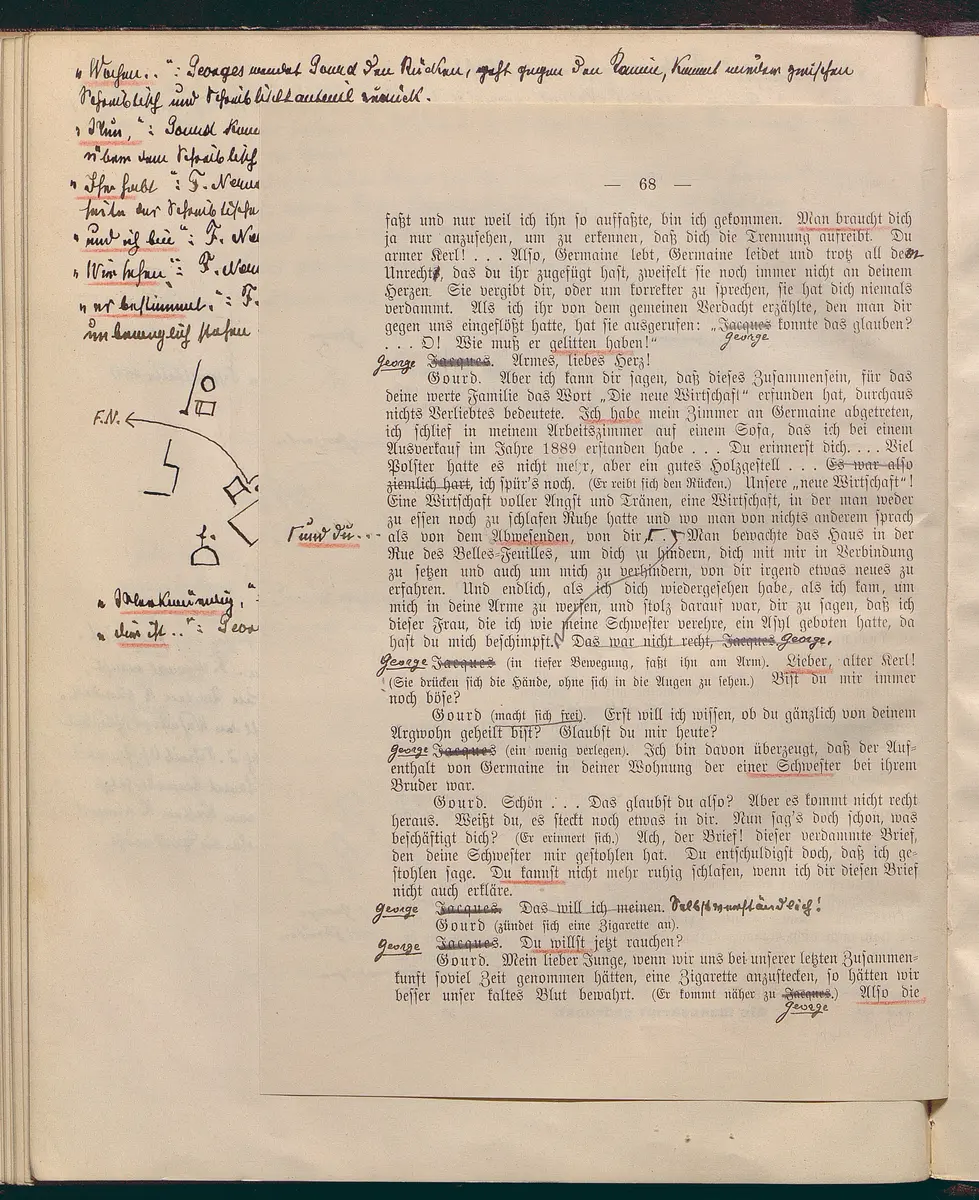 "Wochen.. ": Georges wendet Gourd den Rücken, geht gegen den Kamin, kommt wieder zwischen
Schreibtisch und Schreibtischfauteuil zurück.
"Nun, ": Gourd
über dem Schreibtisch
"Ihr habt ": F.
seite des Schreibtisches
"und ich bin ": F.
"Wir sehen ": F.
"er bestimmt. ": F.
unbeweglich stehen
F.N.
"Merkwürdig, "
"dir ist.. ":
— 68 —
faßt und nur weil ich ihn so auffaßte, bin ich gekommen. Man braucht dich
ja nur anzusehen, um zu erkennen, daß dich die Trennung aufreibt. Du
armer Kerl! . . . Also, Germaine lebt, Germaine leidet und trotz all dem
Unrecht, das du ihr zugefügt hast, zweifelt sie noch immer nicht an deinem
Herzen. Sie vergibt dir, oder um korrekter zu sprechen, sie hat dich niemals
verdammt. Als ich ihr von dem gemeinen Verdacht erzählte, den man dir
gegen uns eingeflößt hatte, hat sie ausgerufen: „Jacques konnte das glauben?
George
. . . O! Wie muß er gelitten haben!"
George Jacques. Armes, liebes Herz!
Gourd. Aber ich kann dir sagen, daß dieses Zusammensein, für das
deine werte Familie das Wort „Die neue Wirtschaft" erfunden hat, durchaus
nichts Verliebtes bedeutete. Ich habe mein Zimmer an Germaine abgetreten,
ich schlief in meinem Arbeitszimmer auf einem Sofa, das ich bei einem
Ausverkauf im Jahre 1889 erstanden habe . . . Du erinnerst dich. . . . Viel
Polster hatte es nicht mehr, aber ein gutes Holzgestell . . . Es war also
ziemlich hart, ich spür's noch. (Er reibt sich den Rücken.) Unsere „neue Wirtschaft"!
Eine Wirtschaft voller Angst und Tränen, eine Wirtschaft, in der man weder
zu essen noch zu schlafen Ruhe hatte und wo man von nichts anderem sprach
und du... als von dem Abwesenden, von dir . . . Man bewachte das Haus in der
Rue des Belles-Feuilles, um dich zu hindern, dich mit mir in Verbindung
zu setzen und auch um mich zu verhindern, von dir irgend etwas neues zu
erfahren. Und endlich, als ich dich wiedergesehen habe, als ich kam, um
mich in deine Arme zu werfen, und stolz darauf war, dir zu sagen, daß ich
dieser Frau, die ich wie meine Schwester verehre, ein Asyl geboten hatte, da
hast du mich beschimpft. Das war nicht recht, Jacques George.
George Jacques (in tiefer Bewegung, faßt ihn am Arm). Lieber, alter Kerl!
(Sie drücken sich die Hände, ohne sich in die Augen zu sehen.) Bist du mir immer
noch böse?
Gourd (macht sich frei). Erst will ich wissen, ob du gänzlich von deinem
Argwohn geheilt bist? Glaubst du mir heute?
George Jacques (ein wenig verlegen). Ich bin davon überzeugt, daß der Auf-
enthalt von Germaine in deiner Wohnung der einer Schwester bei ihrem
Bruder war.
Gourd. Schön . . . Das glaubst du also? Aber es kommt nicht recht
heraus. Weißt du, es steckt noch etwas in dir. Nun sag's doch schon, was
beschäftigt dich? (Er erinnert sich.) Ach, der Brief! dieser verdammte Brief,
den deine Schwester mir gestohlen hat. Du entschuldigst doch, daß ich ge-
stohlen sage. Du kannst nicht mehr ruhig schlafen, wenn ich dir diesen Brief
nicht auch erkläre.
George Jacques. Das will ich meinen. Selbstverständlich!
Gourd (zündet sich eine Zigarette an).
George Jacques. Du willst jetzt rauchen?
Gourd. Mein lieber Junge, wenn wir uns bei unserer letzten Zusammen-
kunft soviel Zeit genommen hätten, eine Zigarette anzustecken, so hätten wir
besser unser kaltes Blut bewahrt. (Er kommt näher zu Jacques.) Also die
George